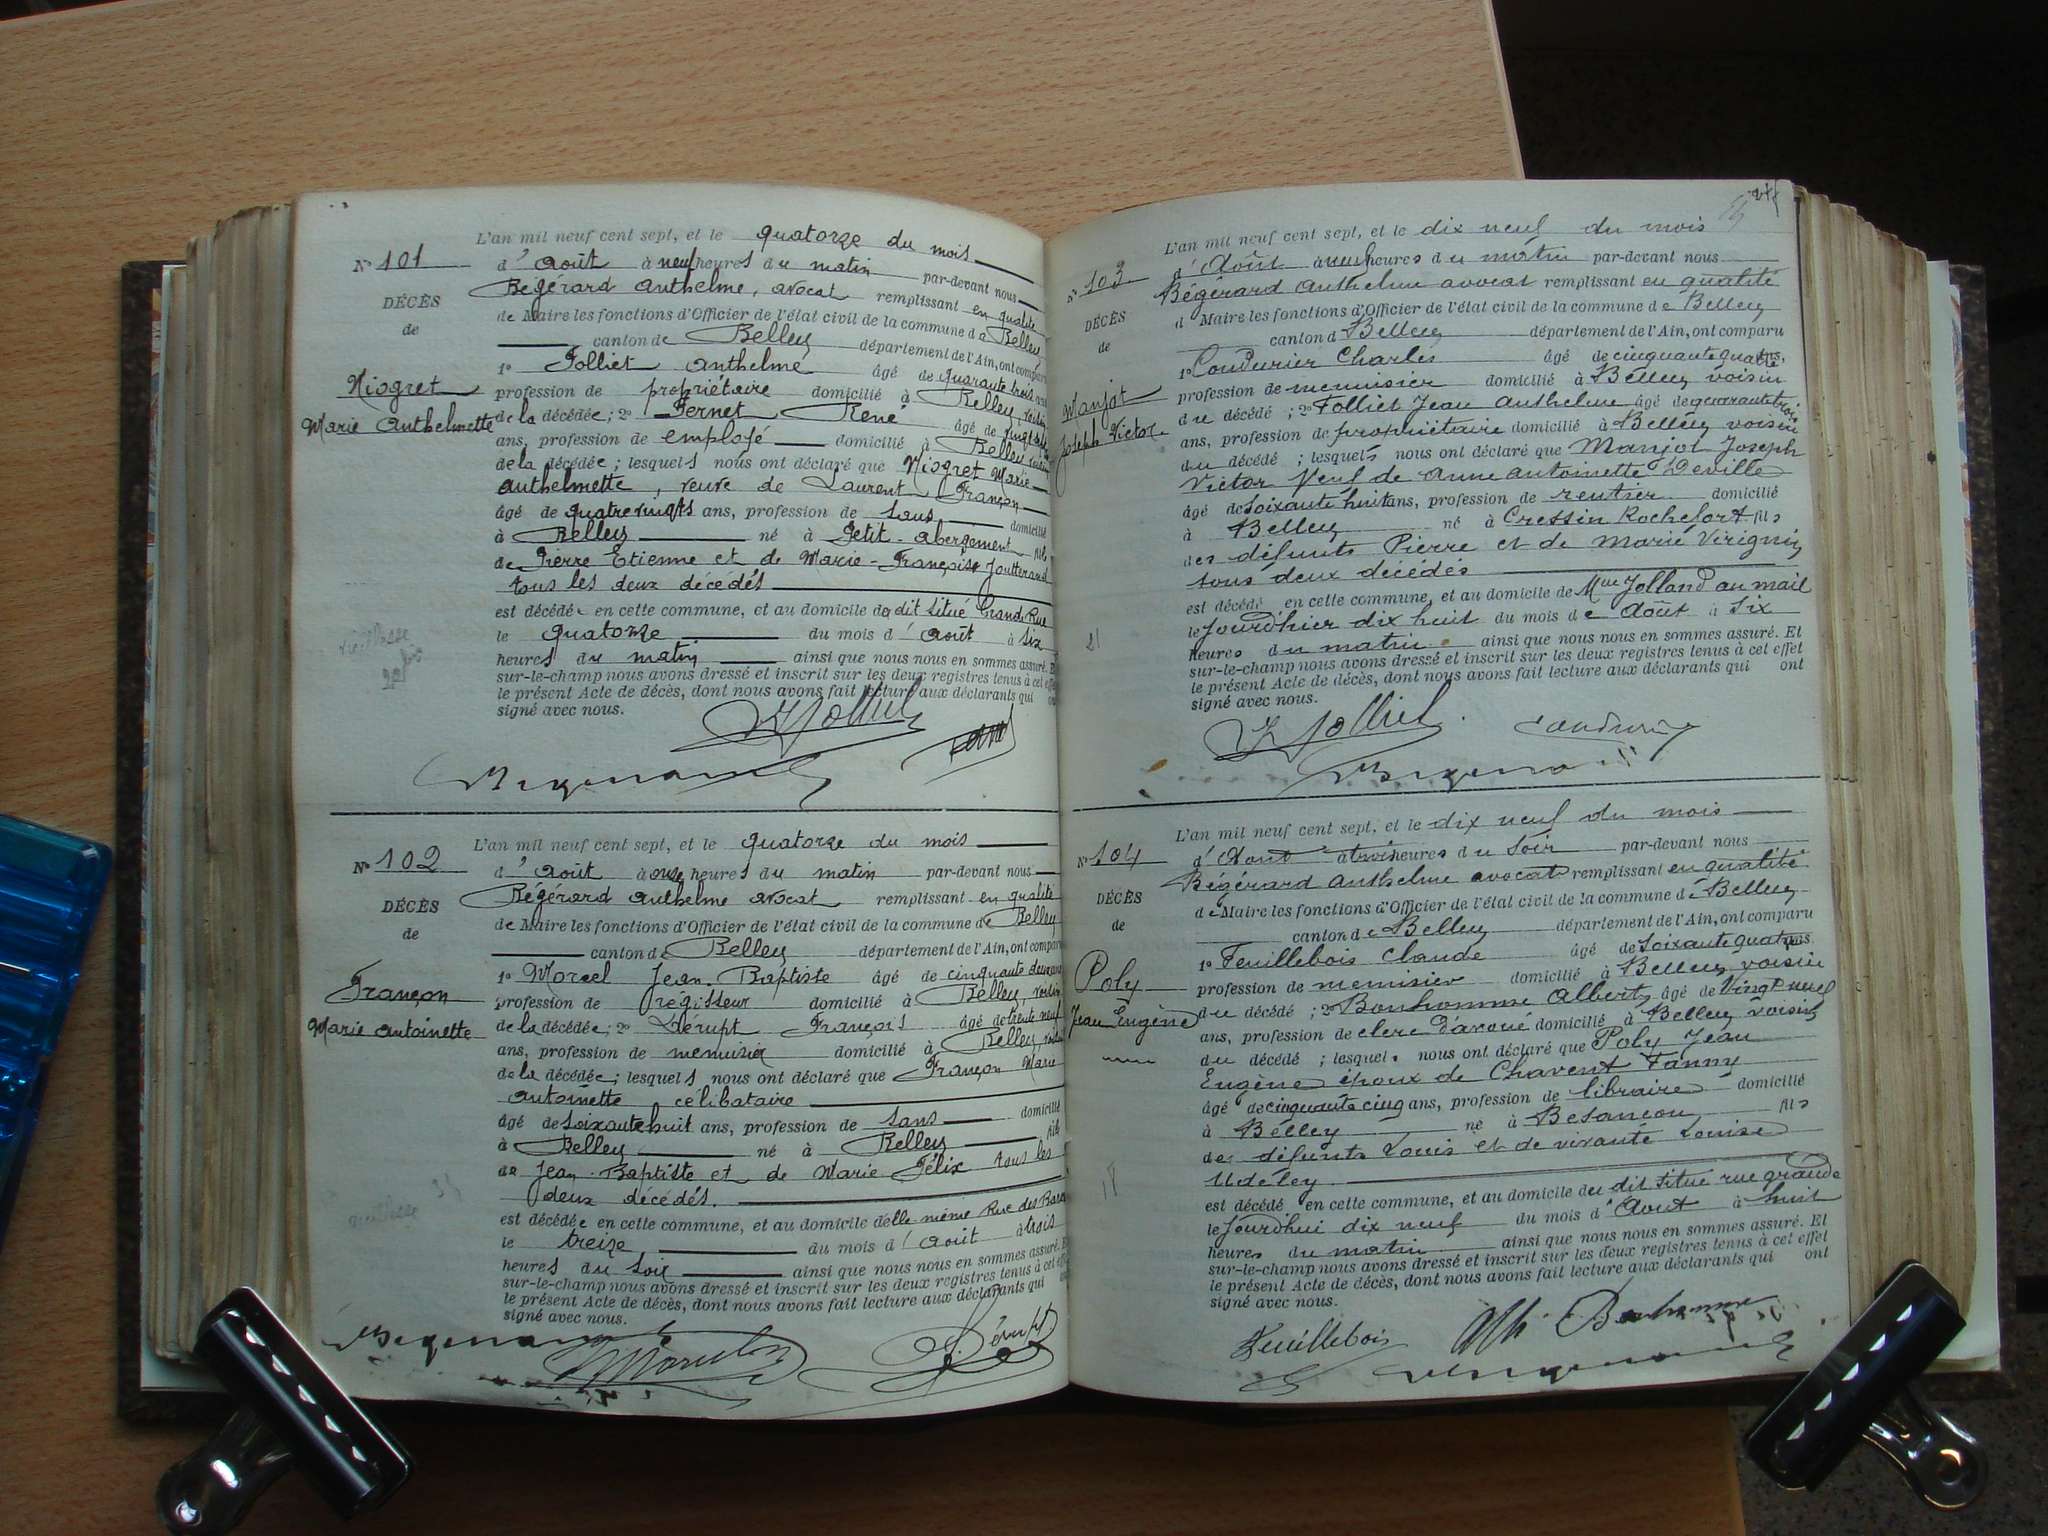 L'an mil neuf cent sept, et le quatorze du mois
N° 101
d'Août à neuf heures du matin par-devant nous
Bégérard Anthelme, avocat remplissant en qualité
DÉCÈS
de Maire les fonctions d'Officier de l'état civil de la commune de Belley
de
canton de Belley département de l'Ain, ont comparu
1° Jolliet Anthelme âgé de quarante trois ans
Niogret
profession de propriétaire domicilié à Belley, voisin
Marie Anthelmette
de la décédée; 2° Pernet René âgé de vingt
ans, profession de employé domicilié à Belley voisin
de la décédée; lesquels nous ont déclaré que Niogret Marie
Anthelmette, veuve de Laurent Françon
âgé de quatre vingts ans, profession de sans domicilié
à Belley né à Petit-abergement fils
de Pierre Etienne et de Marie-Françoise Joutterand
tous les deux décédés
est décédée en cette commune, et au domicile du dit situé Grande Rue
le quatorze du mois d'Août à six
vieillesse
heures du matin ainsi que nous nous en sommes assuré. Et
sur-le-champ nous avons dressé et inscrit sur les deux registres tenus à cet effet
le présent Acte de décès, dont nous avons fait lecture aux déclarants qui ont
signé avec nous.
Jolliet
L'an mil neuf cent sept, et le quatorze du mois
N° 102
d'Août à onze heures du matin par-devant nous
Bégérard Anthelme avocat remplissant en qualité
DÉCÈS
de Maire les fonctions d'Officier de l'état civil de la commune de Belley
de
canton de Belley département de l'Ain, ont comparu
1° Morcel Jean-Baptiste âgé de cinquante deux ans
Françon
profession de régisseur domicilié à Belley, voisin
Marie Antoinette
de la décédée; 2° Dérupt François âgé de trente neuf
ans, profession de menuisier domicilié à Belley, voisin
de la décédée; lesquels nous ont déclaré que Françon Marie
Antoinette célibataire
âgé de soixante huit ans, profession de sans domicilié
à Belley né à Belley fils
de Jean-Baptiste et de Marie Félix tous les
deux décédés.
est décédée en cette commune, et au domicile d'elle même Rue des
le treize du mois d'Août à trois
heures du soir ainsi que nous nous en sommes assuré. Et
sur-le-champ nous avons dressé et inscrit sur les deux registres tenus à cet effet
le présent Acte de décès, dont nous avons fait lecture aux déclarants qui
signé avec nous.
L'an mil neuf cent sept, et le dix neuf du mois
N° 103
d'Août à neuf heures du matin par-devant nous
Bégérard Anthelme avocat remplissant en qualité
DÉCÈS
d Maire les fonctions d'Officier de l'état civil de la commune de Belley
de
canton de Belley département de l'Ain, ont comparu
1° Coudurier Charles âgé de cinquante quatre ans,
Manjot
profession de menuisier domicilié à Belley voisin
Joseph Victor
du décédé; 2° Jolliet Jean Anthelme âgé de quarante trois
ans, profession de propriétaire domicilié à Belley voisin
du décédé; lesquels nous ont déclaré que Manjot Joseph
Victor Veuf de Anne Antoinette Deville
âgé de soixante huit ans, profession de rentier domicilié
à Belley né à Cressin Rochefort fils
des défunts Pierre et de Marie Virignin
tous deux décédés
est décédé en cette commune, et au domicile de Mme Jolland au mail
le Jourdhier dix huit du mois de Août à six
21
heures du matin ainsi que nous nous en sommes assuré. Et
sur-le-champ nous avons dressé et inscrit sur les deux registres tenus à cet effet
le présent Acte de décès, dont nous avons fait lecture aux déclarants qui ont
signé avec nous.
Jolliet Coudurier
L'an mil neuf cent sept, et le dix neuf du mois
N° 104
d'Aout à trois heures du soir par-devant nous
Bégérard Anthelme avocat remplissant en qualité
DÉCÈS
de Maire les fonctions d'Officier de l'état civil de la commune de Belley
de
canton de Belley département de l'Ain, ont comparu
1° Feuillebois Claude âgé de soixante quatre ans
Poly
profession de menuisier domicilié à Belley voisin
Jean Eugène
du décédé; 2° Bonhomme Albert âgé de Vingt neuf
ans, profession de clerc d'avoué domicilié à Belley voisin
du décédé; lesquels nous ont déclaré que Poly Jean
Eugène époux de Chavent Fanny
âgé de cinquante cinq ans, profession de libraire domicilié
à Belley né à Besançon fils
de défunt Louis et de vivante Louise
18
est décédé en cette commune, et au domicile du dit situé rue grande
le Jourdhui dix neuf du mois d'Aout à huit
heures du matin ainsi que nous nous en sommes assuré. Et
sur-le-champ nous avons dressé et inscrit sur les deux registres tenus à cet effet
le présent Acte de décès, dont nous avons fait lecture aux déclarants qui ont
signé avec nous.
Feuillebois Alb. Bonhomme